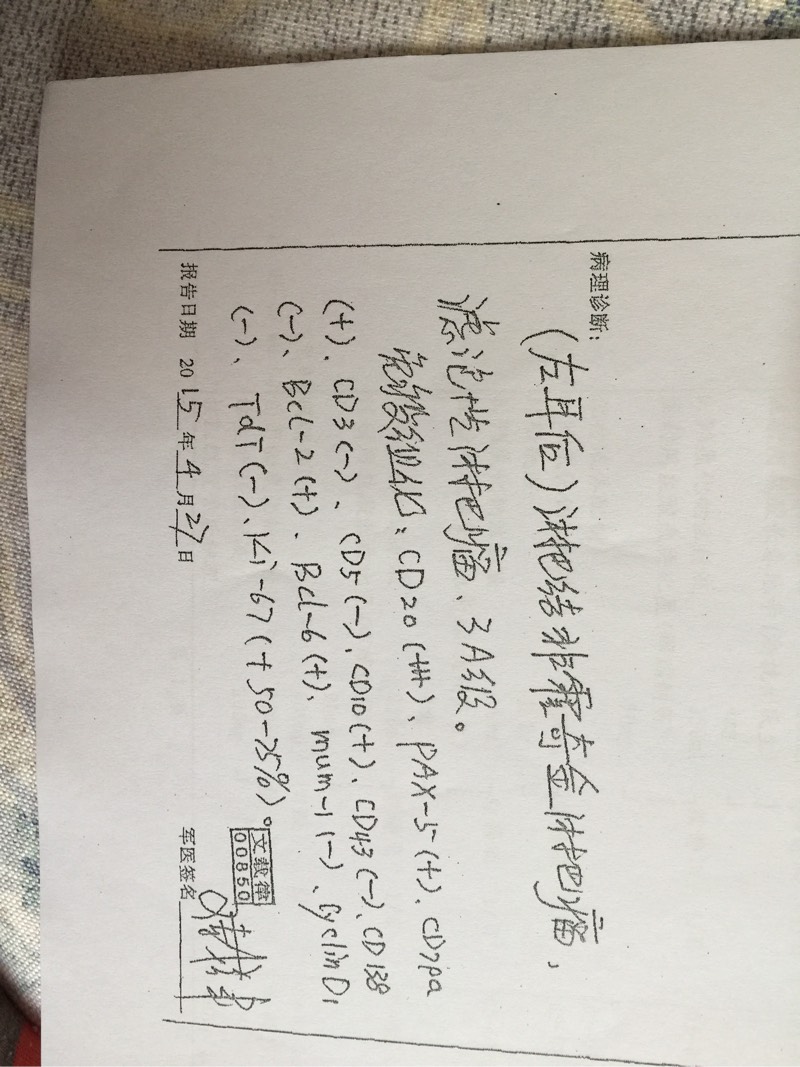 病理诊断：
(左耳后)淋巴结非霍奇金淋巴瘤，
滤泡性淋巴瘤、3A级。
免疫组化：CD20(+++)、PAX-5(+)、CD79a
(+)、CD3(-)、CD5(-)、CD10(+)、CD43(-)、CD138
(-)、Bcl-2(+)、Bcl-6(+)、mum-1(-)、CyclinD1
(-)、TdT(-)、Ki-67(+50-75%)。
文载第
00850
报告日期 2015年4月27日 军医签名